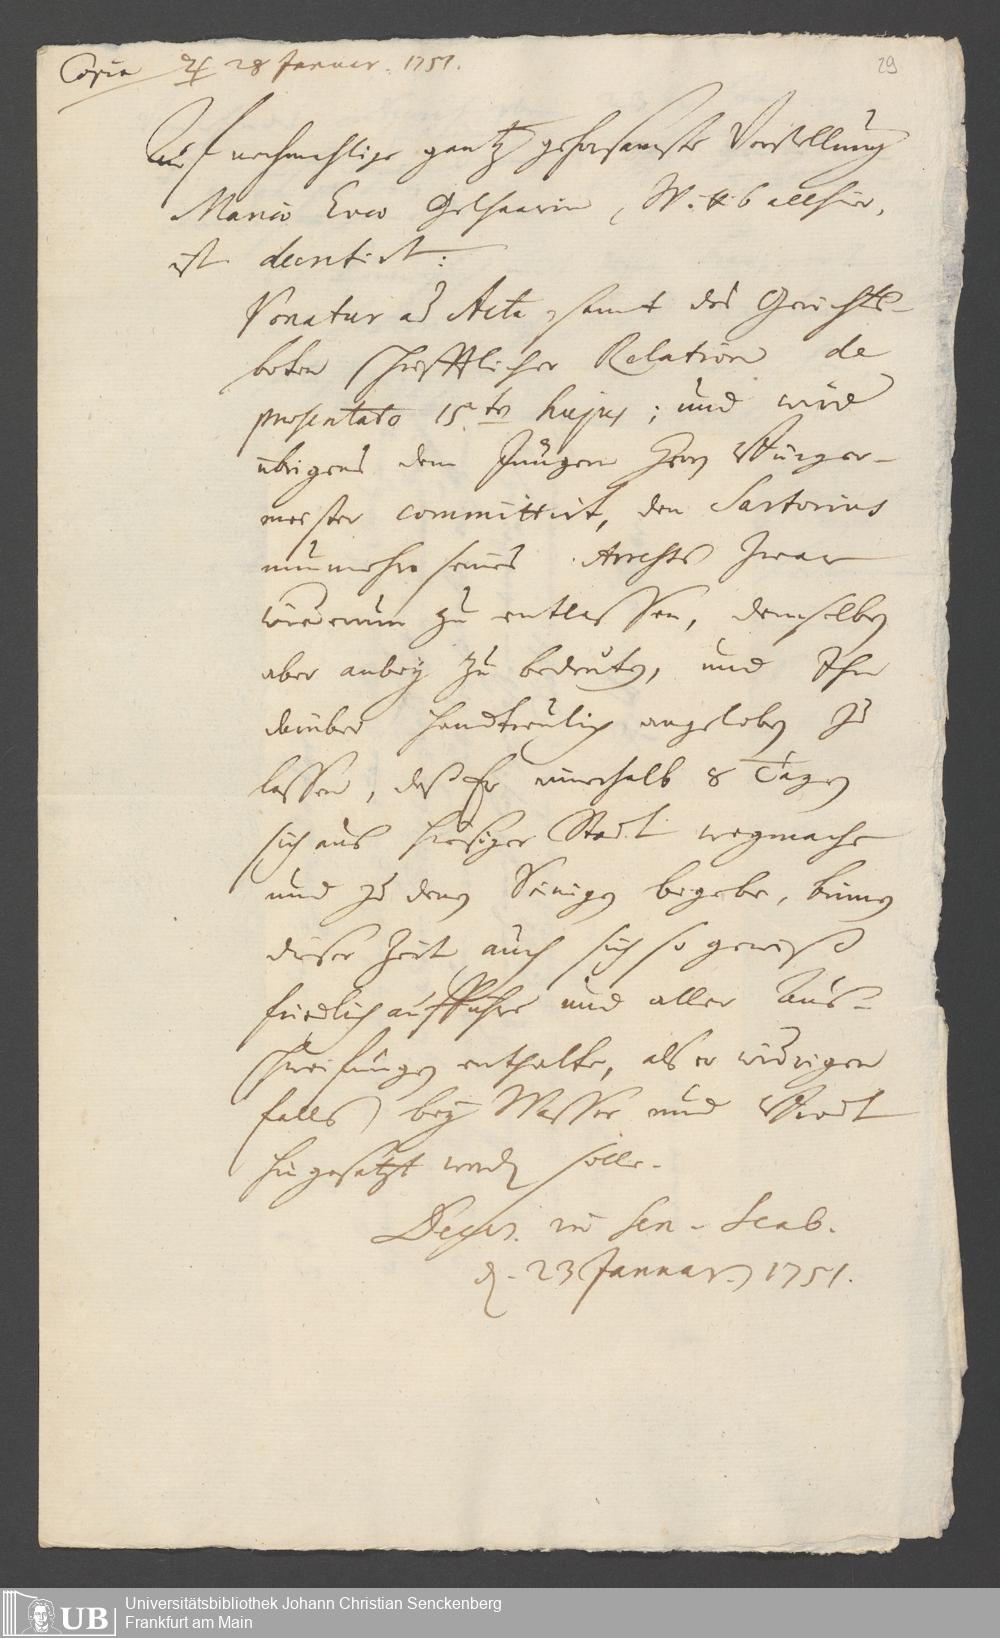 Copia ♃ 28 Januar. 1751.
29
Auf nochmahlige gantz gehorsamste Vorstellung
Maria Eva Gelhaarin, Wittib allhier,
ist decretirt:
Ponatur ad Acta, samt des Gerichts-
boten schrifftlicher Relation de
præsentato 15.ten hujus; und wird
übrigens dem Jüngern Herrn Bürger-
meister committirt, den Sartorius
nunmehro seines Arrests zwar
wiederum zu entlassen, demselben
aber anbey zu bedeuten, und Ihn
darüber handtreulich angeloben zu
lassen, daß Er innerhalb 8 Tagen
sich aus hiesiger Stadt wegmache
und zu denen Seinigen begebe, binnen
dieser Zeit auch sich so gewiß
friedlich aufführe und aller Aus-
schweifungen enthalte, als er widrigen
falls bey Wasser und Brodt
hingesetzt werden solle.
Decret. in Sen. Scab.
d. 23 Januar. 1751.
UB
Universitätsbibliothek Johann Christian Senckenberg
Frankfurt am Main